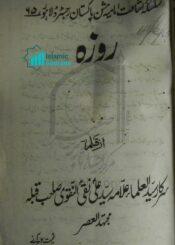 سلسلہ اشاعت امامیہ مشن پاکستان رجسٹرڈ لاہور ۶۵
روزہ
Islamic
از قلم
سرکار سید العلماء علامہ سید علی نقی النقوی صاحب قبلہ
مجتہد العصر